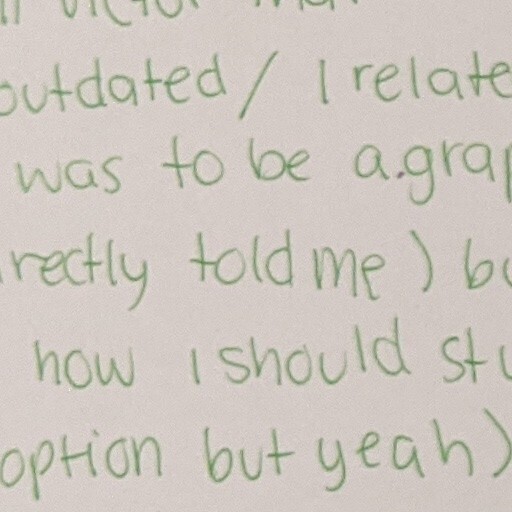 outdated / I relate
was to be a.grap
rectly told me) bu
how i should stu
option but yeah)